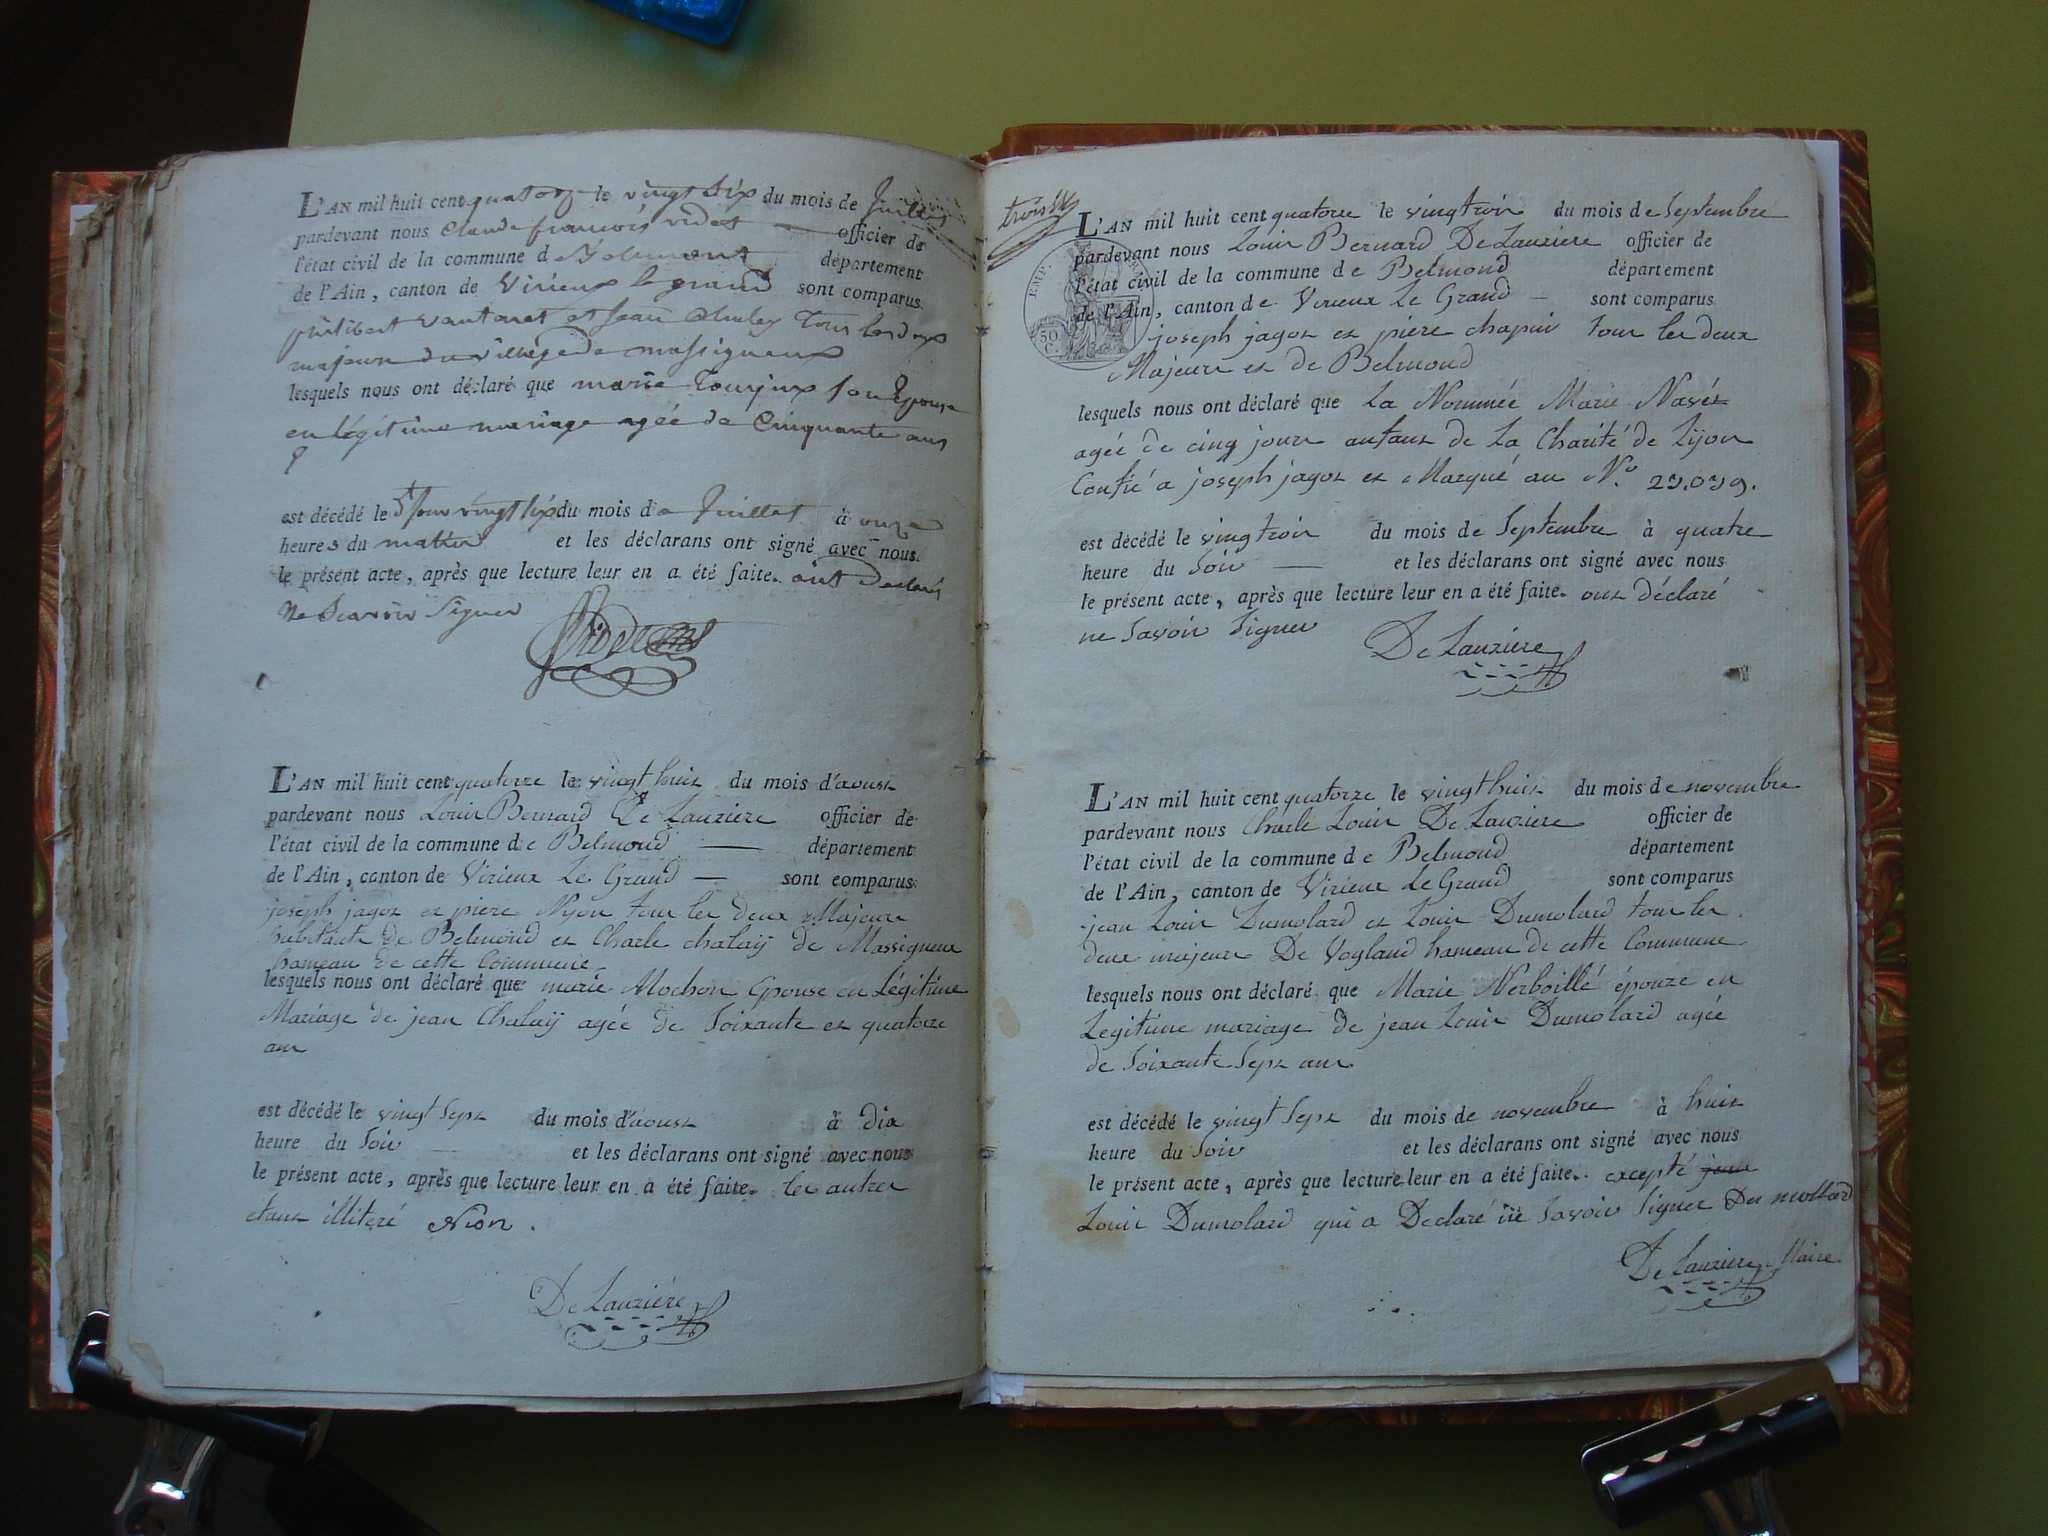 L'AN mil huit cent quatorze le vingt six du mois de Juillet
pardevant nous Claude françois videt officier de
l'état civil de la commune d Belmont département
de l'Ain, canton de Virieux le grand sont comparus
philibert vantaret et Jean Tous les deux
majeurs du village de massigneux
lesquels nous ont déclaré que marie son Epouse
en légitime mariage agée de Cinquante ans
est décédé le jour vingt six du mois de Juillet à onze
heures du matin et les déclarans ont signé avec nous
le présent acte, après que lecture leur en a été faite. ont declarés
Ne Scavoir Signer
L'AN mil huit cent quatorze le vingt huit du mois d'aoust
pardevant nous Louis Bernard De Lauziere officier de
l'état civil de la commune de Belmond département
de l'Ain, canton de Virieux Le Grand sont comparus
joseph jagot et piere Nyon tous les deux Majeurs
habitants de Belmond et Charle chalaÿ de Massigneux
hameau de cette Commune
lesquels nous ont déclaré que marie Mochon Epouse en Légitime
Mariage de jean Chalaÿ agée de Soixante et quatorze
ans
est décédé le vingt Sept du mois d'aoust à dix
heure du Soir et les déclarans ont signé avec nous
le présent acte, après que lecture leur en a été faite. les autres
étant illiteré Nion.
De Lauziére
L'AN mil huit cent quatorze le vingtrois du mois de Septembre
pardevant nous Louis Bernard De Lauziere officier de
l'état civil de la commune de Belmond département
de l'Ain, canton de Virieux Le Grand sont comparus
EMP.
50 C.
joseph jagot et piere chapuis tous les deux
Majeurs et de Belmond
lesquels nous ont déclaré que La Nommée Marie Navét
agée de cinq jours anfant de La Charité de Lijon
Confié a joseph jagot et Marqué au N.o 23.039.
est décédé le vingtrois du mois de Septembre à quatre
heure du Soir et les déclarans ont signé avec nous
le présent acte, après que lecture leur en a été faite. ont déclaré
ne Savoir Signer
De Lauziére
L'AN mil huit cent quatorze le vingt huit du mois de novembre
pardevant nous Charle Louis De Lauziere officier de
l'état civil de la commune de Belmond département
de l'Ain, canton de Virieux Le Grand sont comparus
jean Louis Dumolard et Louis Dumolard tous les
deux majeurs De Vogland hameau de cette Commune
lesquels nous ont déclaré que Marie Nerboillé épouze en
Legitime mariage de jean Louis Dumolard agée
de Soixante Sept ans
est décédé le vingt Sept du mois de novembre à huit
heure du Soir et les déclarans ont signé avec nous
le présent acte, après que lecture leur en a été faite. excepté jean
Louis Dumolard qui a Declaré ne Savoir Signer Du mollard
De Lauziere Maire